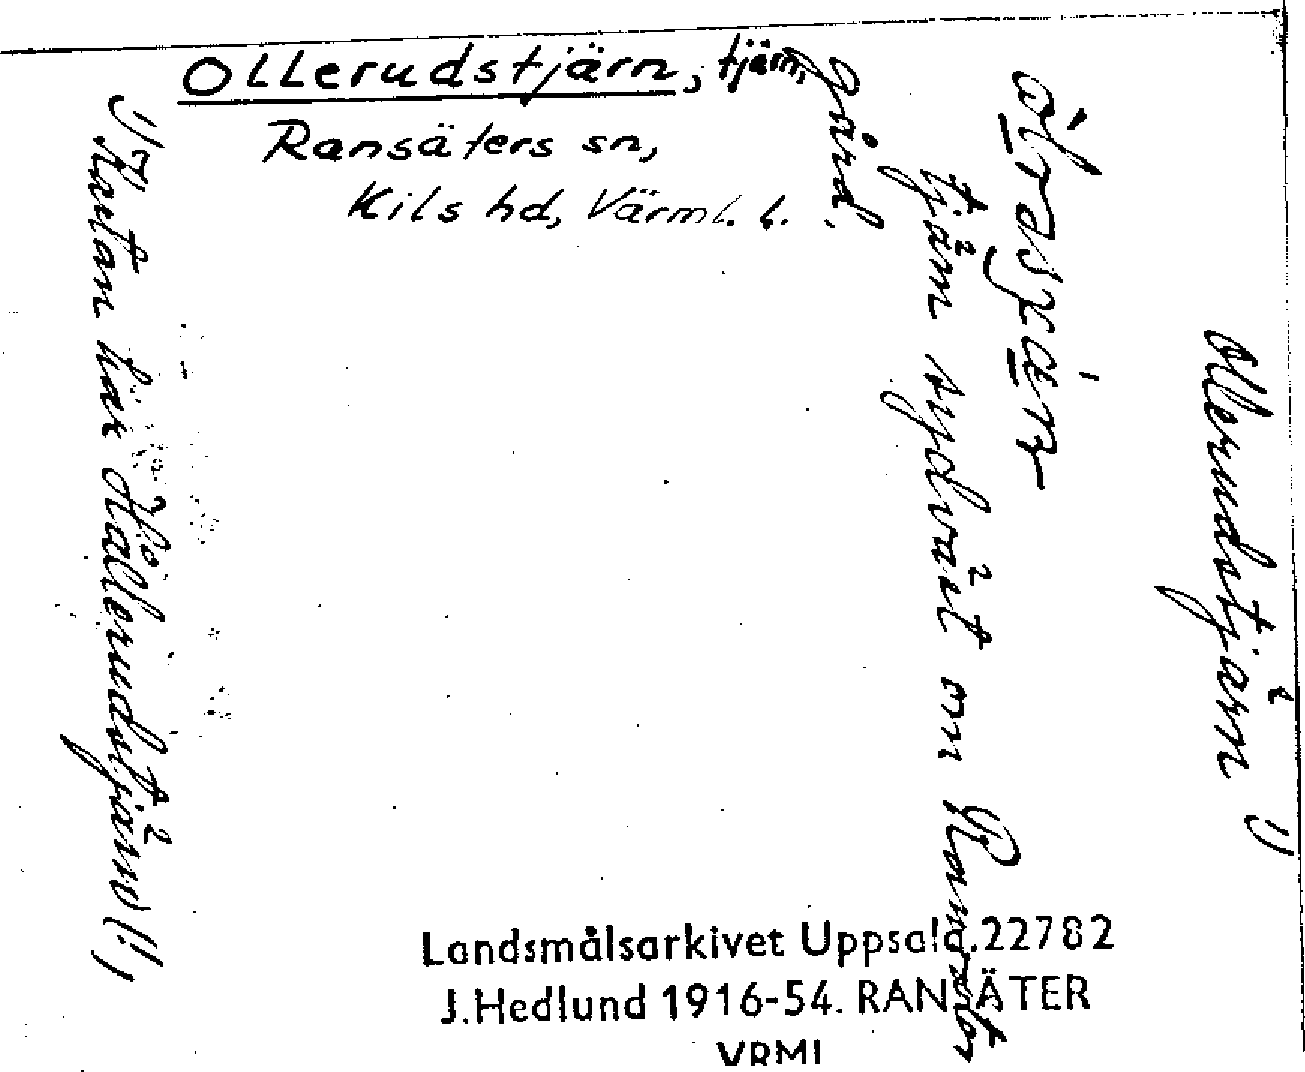 Ollerudstjärn, tjärn,
gård.
Ransäters sn,
Kils hd, Värml. l.
Ollerudstjärn 1)
tjärn sydväst om Ransäter
1) Kartan har Hållerudstjärnd (!)
Landsmålsarkivet Uppsala. 22782
J. Hedlund 1916-54. RANSÄTER
VRML